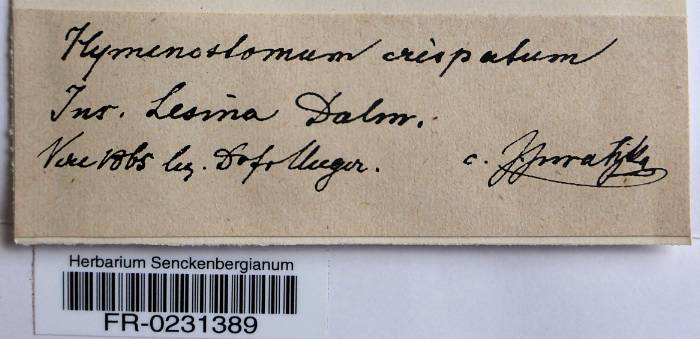 Hymenostomum crispatum
Ins. Lesina Dalm.
Vere 1865 leg. Unger. c. J. Juratzka
Herbarium Senckenbergianum
FR-0231389